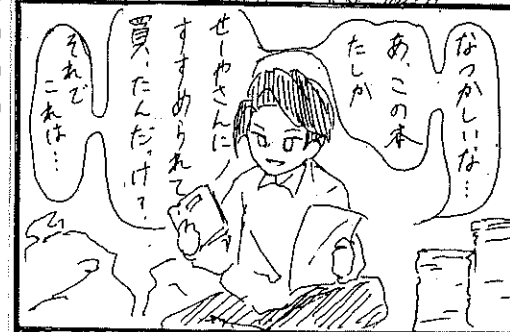 なつかしいな…
あ、この本
たしか
せーやさんに
すすめられて
買ったんだっけ？
それで
これは…